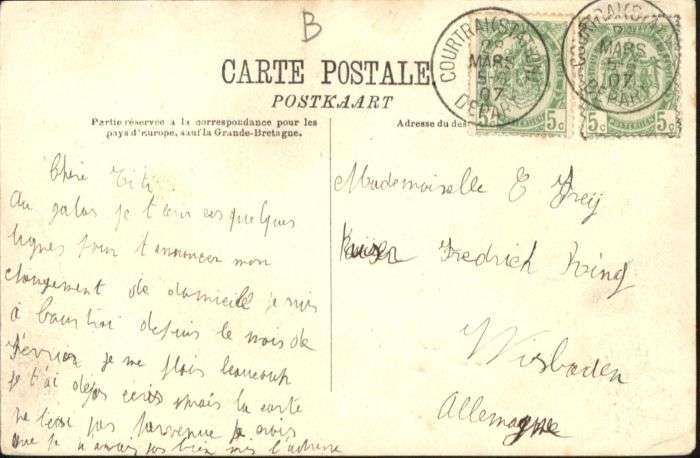 B
CARTE POSTALE
POSTKAART
Partie réservée à la correspondance pour les
pays d'Europe, sauf la Grande-Bretagne.
Adresse du des
COURTRAI (STATION)
MARS
07
DEPART
COURTRAI (STATION)
MARS
07
DEPART
5c 5c
5c 5c
Chère Titi
Au galop je t'ecris quelques
lignes pour t'annoncer mon
changement de domicile je suis
à Courtrai depuis le mois de
Février je me plais beaucoup
je t'ai déjà écris mais la carte
ne t'est pas parvenue je crois
que je n'avais pas bien mis l'adresse
Mademoiselle E Freij
Kaiser Fredrich Ring
Wisbaden
Allemagne